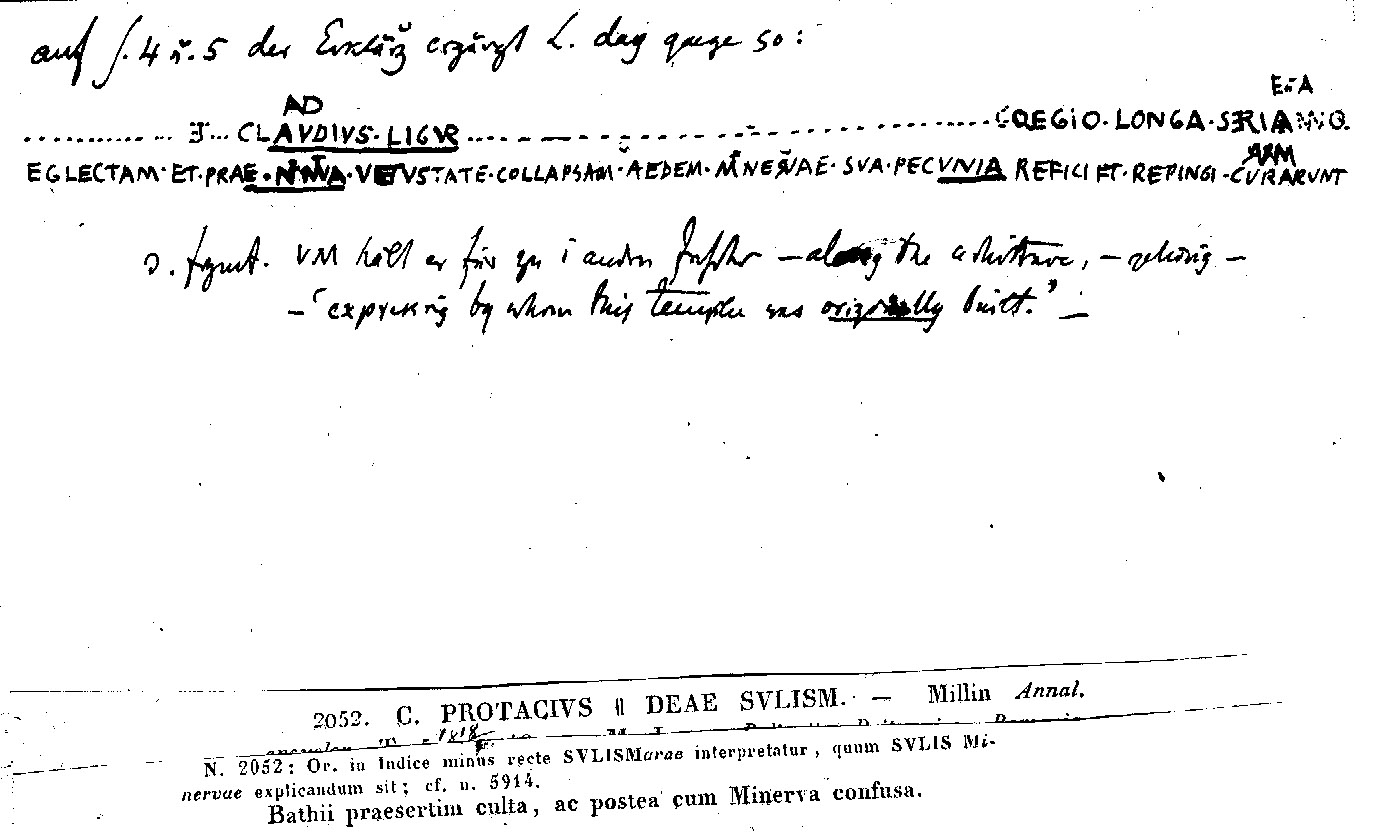 auf S. 4 u. 5 der Erklärg ergänzt L. das ganze so:
AD E.A
CLAVDIVS·LIGVR COLEGIO·LONGA·SERIA
EGLECTAM·ET·PRAE·NIMIA·VETVSTATE·COLLAPSAM·AEDEM·MINERVAE·SVA·PECVNIA REFICI ET·REPINGI·CVRARVNT
ARM
d. fgmt. VM hält er für zu andern along the —
— "by whom this temple was originally built." —
2052. C. PROTACIVS || DEAE SVLISM. — Millin Annal.
1818
N. 2052: Or. in Indice minus recte SVLISMarae interpretatur, quum SVLIS Mi-
nervae explicandum sit; cf. n. 5914.
Bathii praesertim culta, ac postea cum Minerva confusa.